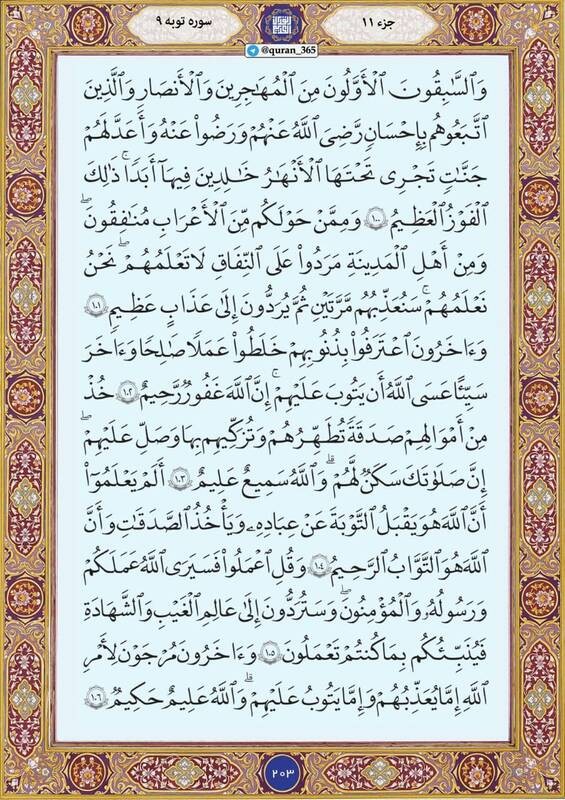 جزء ۱۱
سوره توبه ۹
@quran_365
وَٱلسَّٰبِقُونَ ٱلۡأَوَّلُونَ مِنَ ٱلۡمُهَٰجِرِينَ وَٱلۡأَنصَارِ وَٱلَّذِينَ
ٱتَّبَعُوهُم بِإِحۡسَٰنٖ رَّضِيَ ٱللَّهُ عَنۡهُمۡ وَرَضُواْ عَنۡهُ وَأَعَدَّ لَهُمۡ
جَنَّٰتٖ تَجۡرِي تَحۡتَهَا ٱلۡأَنۡهَٰرُ خَٰلِدِينَ فِيهَآ أَبَدٗاۚ ذَٰلِكَ
ٱلۡفَوۡزُ ٱلۡعَظِيمُ ١٠٠ وَمِمَّنۡ حَوۡلَكُم مِّنَ ٱلۡأَعۡرَابِ مُنَٰفِقُونَۖ
وَمِنۡ أَهۡلِ ٱلۡمَدِينَةِ مَرَدُواْ عَلَى ٱلنِّفَاقِ لَا تَعۡلَمُهُمۡۖ نَحۡنُ
نَعۡلَمُهُمۡۚ سَنُعَذِّبُهُم مَّرَّتَيۡنِ ثُمَّ يُرَدُّونَ إِلَىٰ عَذَابٍ عَظِيمٖ ١٠١
وَءَاخَرُونَ ٱعۡتَرَفُواْ بِذُنُوبِهِمۡ خَلَطُواْ عَمَلٗا صَٰلِحٗا وَءَاخَرَ
سَيِّئًا عَسَى ٱللَّهُ أَن يَتُوبَ عَلَيۡهِمۡۚ إِنَّ ٱللَّهَ غَفُورٞ رَّحِيمٌ ١٠٢ خُذۡ
مِنۡ أَمۡوَٰلِهِمۡ صَدَقَةٗ تُطَهِّرُهُمۡ وَتُزَكِّيهِم بِهَا وَصَلِّ عَلَيۡهِمۡۖ
إِنَّ صَلَوٰتَكَ سَكَنٞ لَّهُمۡۗ وَٱللَّهُ سَمِيعٌ عَلِيمٌ ١٠٣ أَلَمۡ يَعۡلَمُوٓاْ
أَنَّ ٱللَّهَ هُوَ يَقۡبَلُ ٱلتَّوۡبَةَ عَنۡ عِبَادِهِۦ وَيَأۡخُذُ ٱلصَّدَقَٰتِ وَأَنَّ
ٱللَّهَ هُوَ ٱلتَّوَّابُ ٱلرَّحِيمُ ١٠٤ وَقُلِ ٱعۡمَلُواْ فَسَيَرَى ٱللَّهُ عَمَلَكُمۡ
وَرَسُولُهُۥ وَٱلۡمُؤۡمِنُونَۖ وَسَتُرَدُّونَ إِلَىٰ عَٰلِمِ ٱلۡغَيۡبِ وَٱلشَّهَٰدَةِ
فَيُنَبِّئُكُم بِمَا كُنتُمۡ تَعۡمَلُونَ ١٠٥ وَءَاخَرُونَ مُرۡجَوۡنَ لِأَمۡرِ
ٱللَّهِ إِمَّا يُعَذِّبُهُمۡ وَإِمَّا يَتُوبُ عَلَيۡهِمۡۗ وَٱللَّهُ عَلِيمٌ حَكِيمٞ ١٠٦
۲۰۳